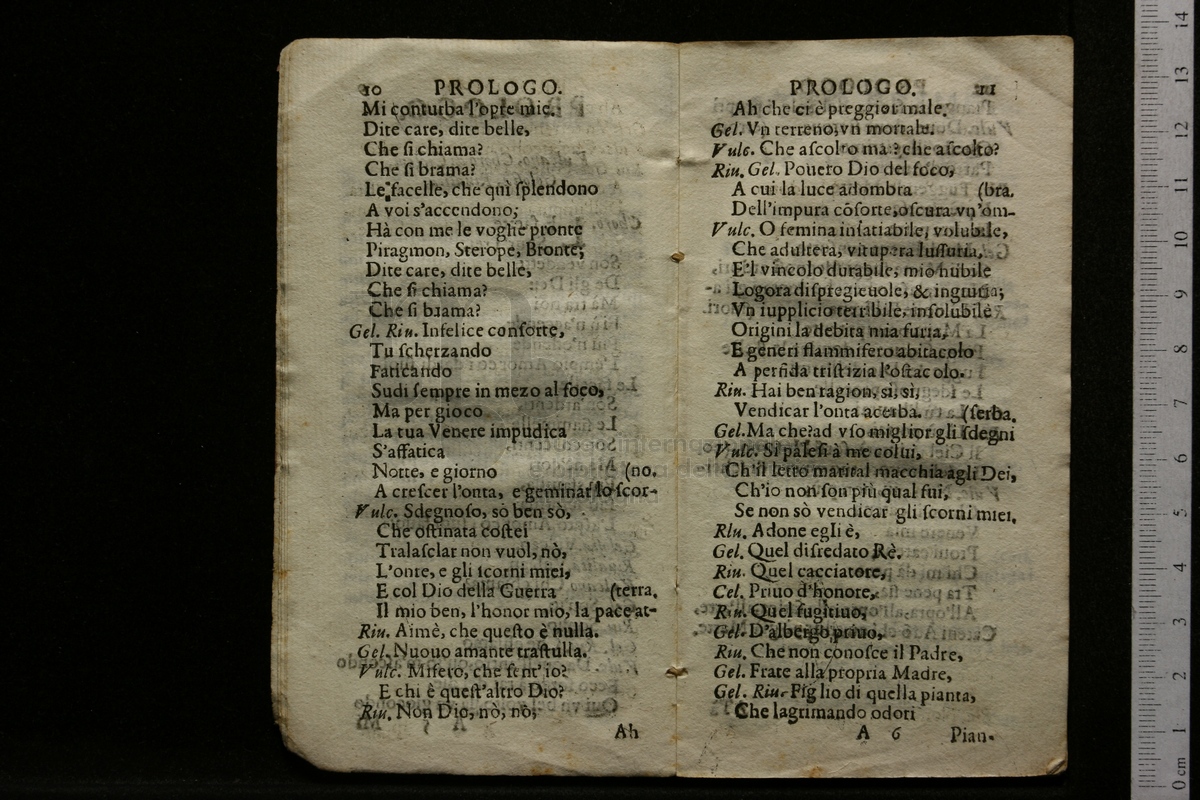 10 PROLOGO.
Mi conturba l'opre mie.
Dite care, dite belle,
Che ſi chiama?
Che ſi brama?
Le facelle, che quì ſplendono
A voi s'accendono;
Hà con me le voglie pronte
Piragmon, Sterope, Bronte;
Dite care, dite belle,
Che ſi chiama?
Che ſi brama?
Gel. Riu. Infelice conſorte,
Tu ſcherzando
Faticando
Sudi ſempre in mezo al foco,
Ma per gioco
La tua Venere impudica
S'affatica
Notte, e giorno (no.
A creſcer l'onta, e geminar lo ſcor-
Vulc. Sdegnoſo, sò ben sò,
Che oſtinata coſtei
Tralaſclar non vuol, nò,
L'onte, e gli ſcorni miei,
E col Dio della Guerra (terra.
Il mio ben, l'honor mio, la pace at-
Riu. Aimè, che queſto è nulla.
Gel. Nuouo amante traſtulla.
Vulc. Miſero, che ſent'io?
E chi è queſt'altro Dio?
Riu. Non Dio, nò, nò,
Ah
PROLOGO. 11
Ah che ci è preggior male.
Gel. Vn terreno, vn mortale.
Vulc. Che aſcolto ma? che aſcolto?
Riu. Gel. Pouero Dio del foco,
A cui la luce adombra (bra.
Dell'impura cõſorte, oſcura vn'om-
Vulc. O femina inſatiabile, volubile,
Che adultera, vitupera luſſuria,
E'l vincolo durabile, mio nubile
Logora diſpregieuole, & ingiuria;
Vn ſupplicio terribile, inſolubile
Origini la debita mia furia,
E generi flammifero abitacolo
A perfida triſtizia l'oſtacolo.
Riu. Hai ben ragion, sì, sì,
Vendicar l'onta acerba. (ſerba.
Gel. Ma che? ad vſo miglior gli ſdegni
Vulc. Si paleſi à me colui,
Ch'il letto marital macchia agli Dei,
Ch'io non ſon più qual fui,
Se non sò vendicar gli ſcorni miei.
Rlu. Adone egli è,
Gel. Quel diſredato Rè.
Riu. Quel cacciatore,
Cel. Priuo d'honore,
Riu. Quel fugitiuo,
Gel. D'albergo priuo,
Riu. Che non conoſce il Padre,
Gel. Frate alla propria Madre,
Gel. Riu. Figlio di quella pianta,
Che lagrimando odori
A 6 Pian-